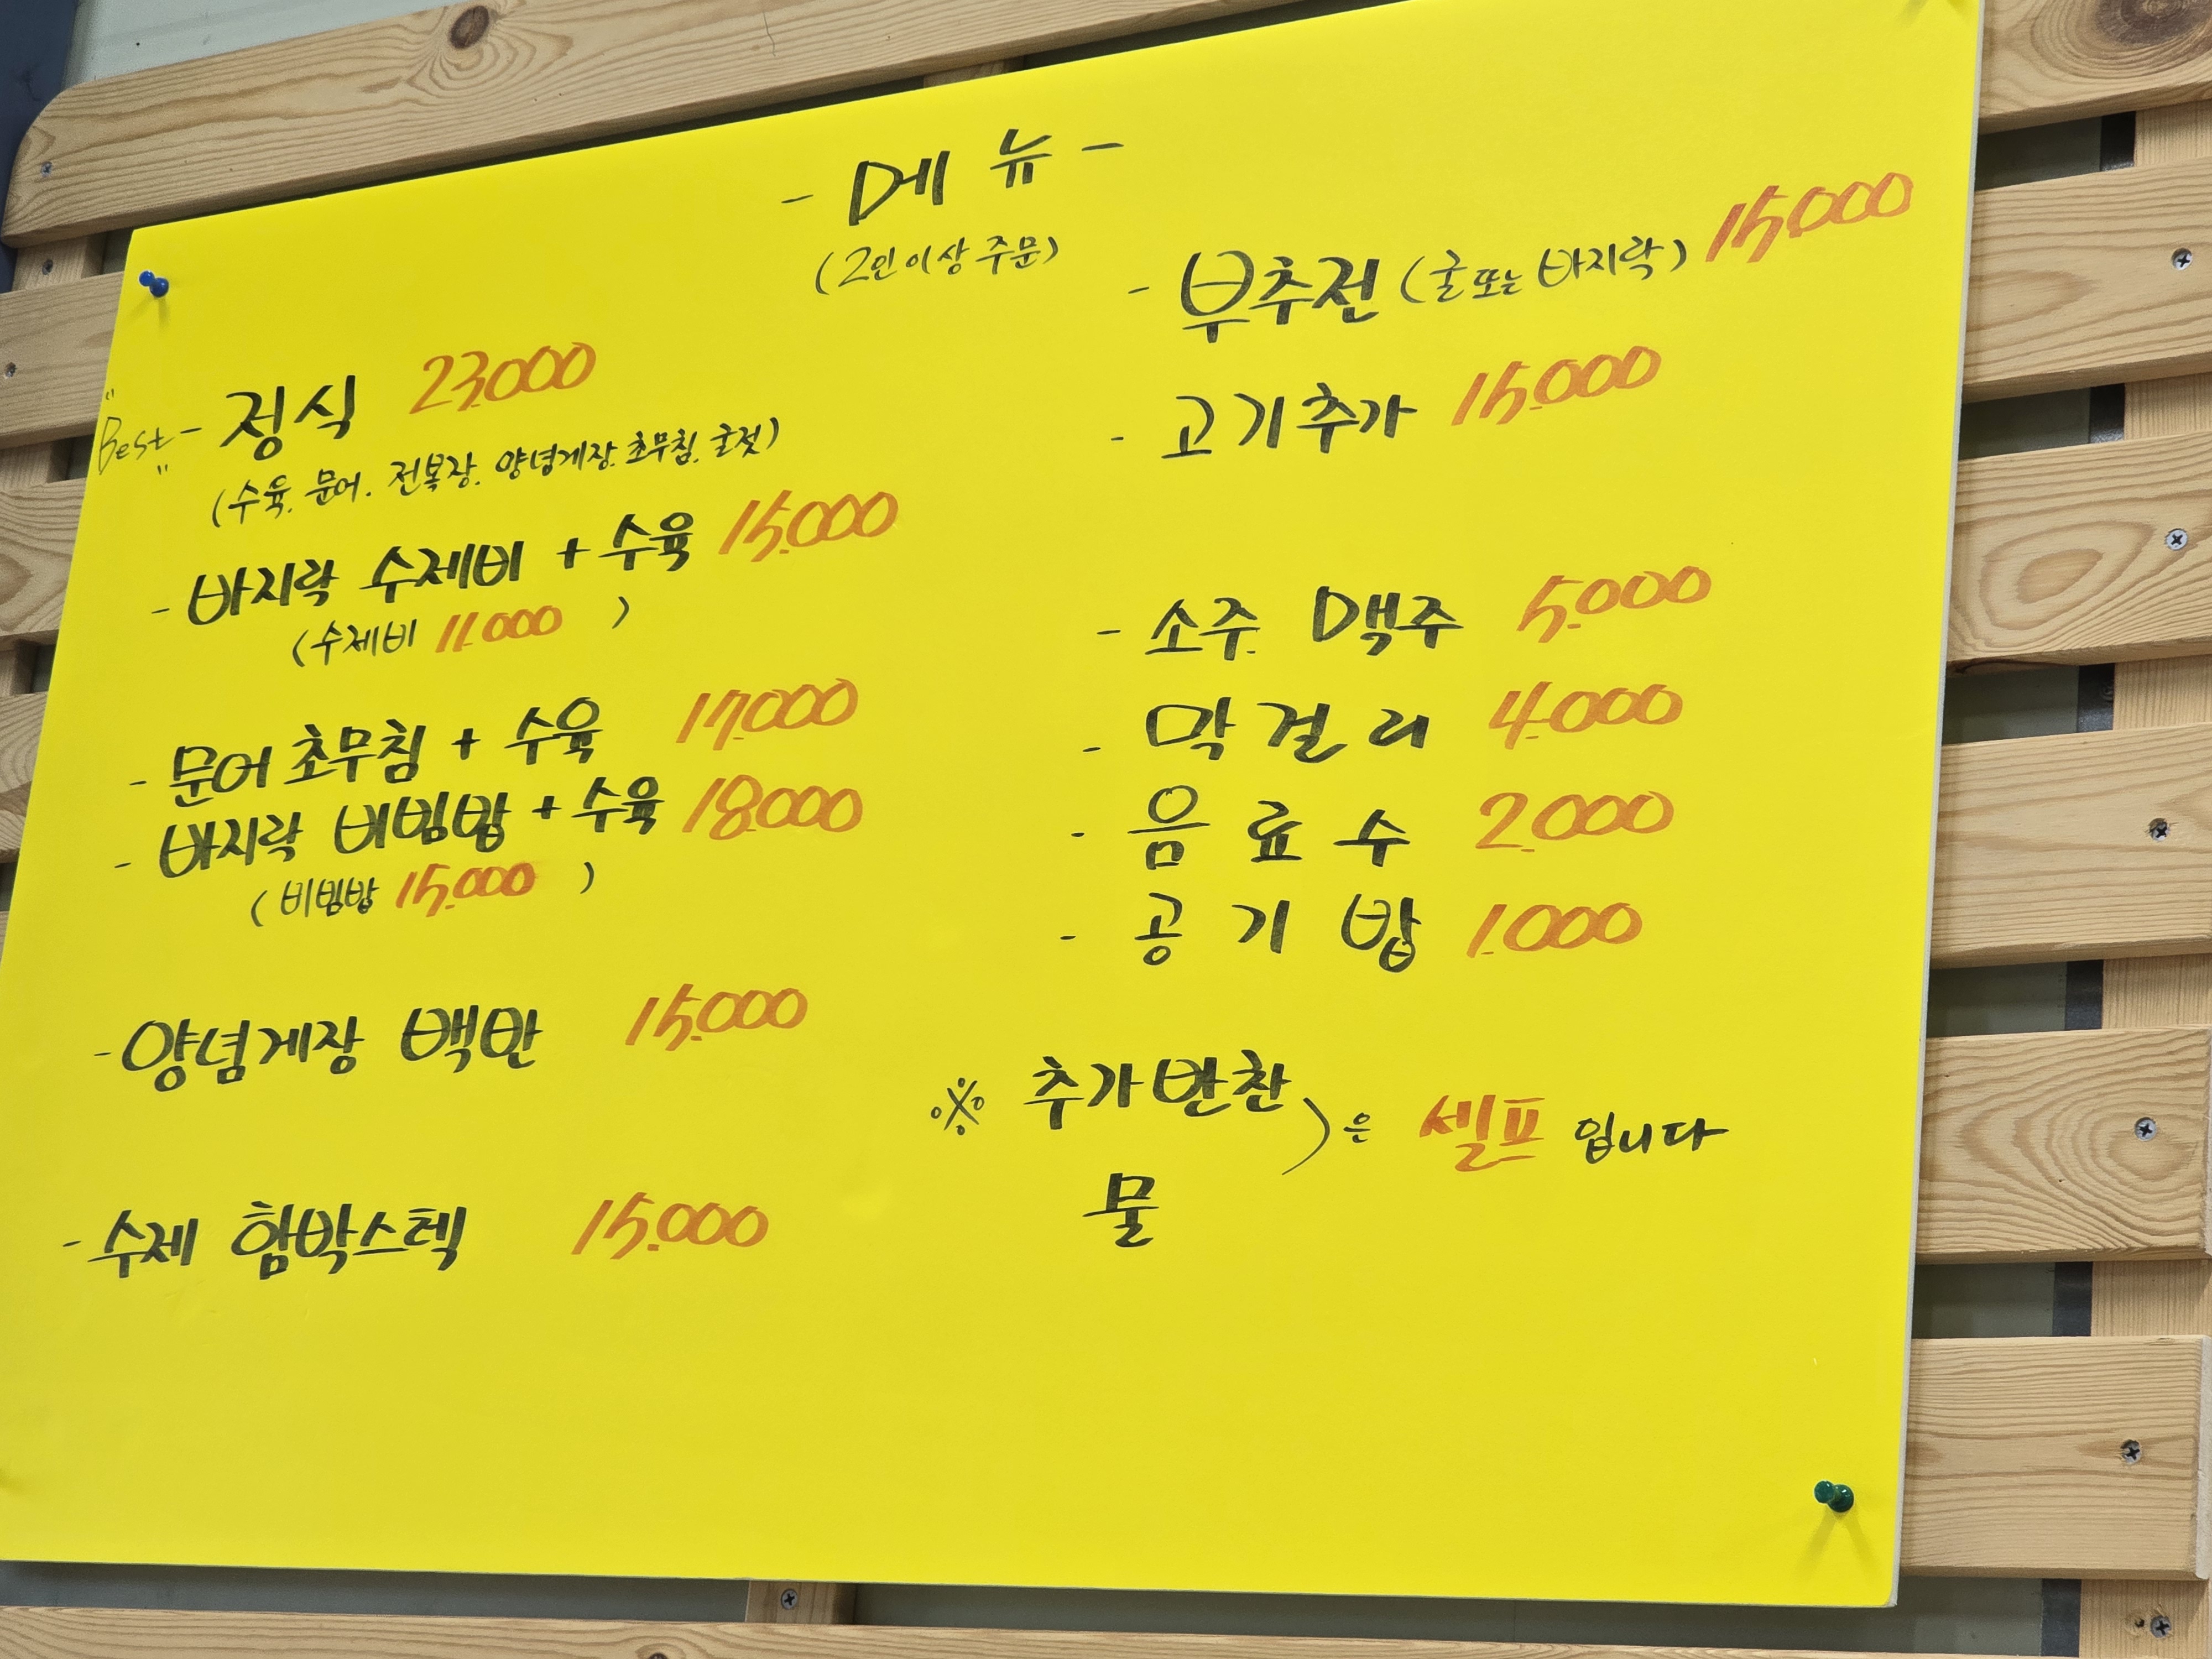 - 메 뉴 -
(2인 이상 주문)
"Best" - 정식 23,000
(수육. 문어. 전복장. 양념게장. 초무침. 굴젓)
- 바지락 수제비 + 수육 15,000
(수제비 11,000 )
- 문어 초무침 + 수육 17,000
- 바지락 비빔밥 + 수육 18,000
(비빔밥 15,000 )
- 양념게장 백반 15,000
- 수제 함박스텍 15,000
- 부추전 (굴 또는 바지락) 15,000
- 고기추가 15,000
- 소주. 맥주 5,000
- 막걸리 4,000
- 음료수 2,000
- 공기밥 1,000
※ 추가반찬
물
)은 셀프 입니다